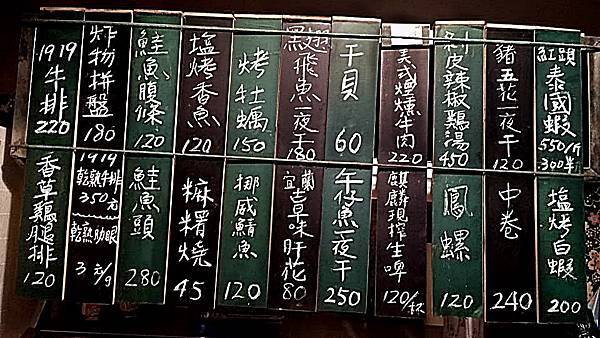 紅蹞
泰國蝦
550/斤
300/半
豬五花一夜干
120
剝皮辣椒雞湯
450
美式煙燻牛肉
220
干貝
60
黑翅飛魚一夜干
180
烤牡蠣
150
塩烤香魚
120
鮭魚腹條
120
炸物拼盤
180
1919
牛排
220
塩烤白蝦
200
中卷
240
鳳螺
120
麒麟現搾生啤
120/杯
午仔魚一夜干
250
宜蘭
古早味肝花
80
挪威鯖魚
120
麻糬燒
45
鮭魚頭
280
1919
乾熟牛排
350元
乾熟肋眼
3元/g
香草雞腿排
120